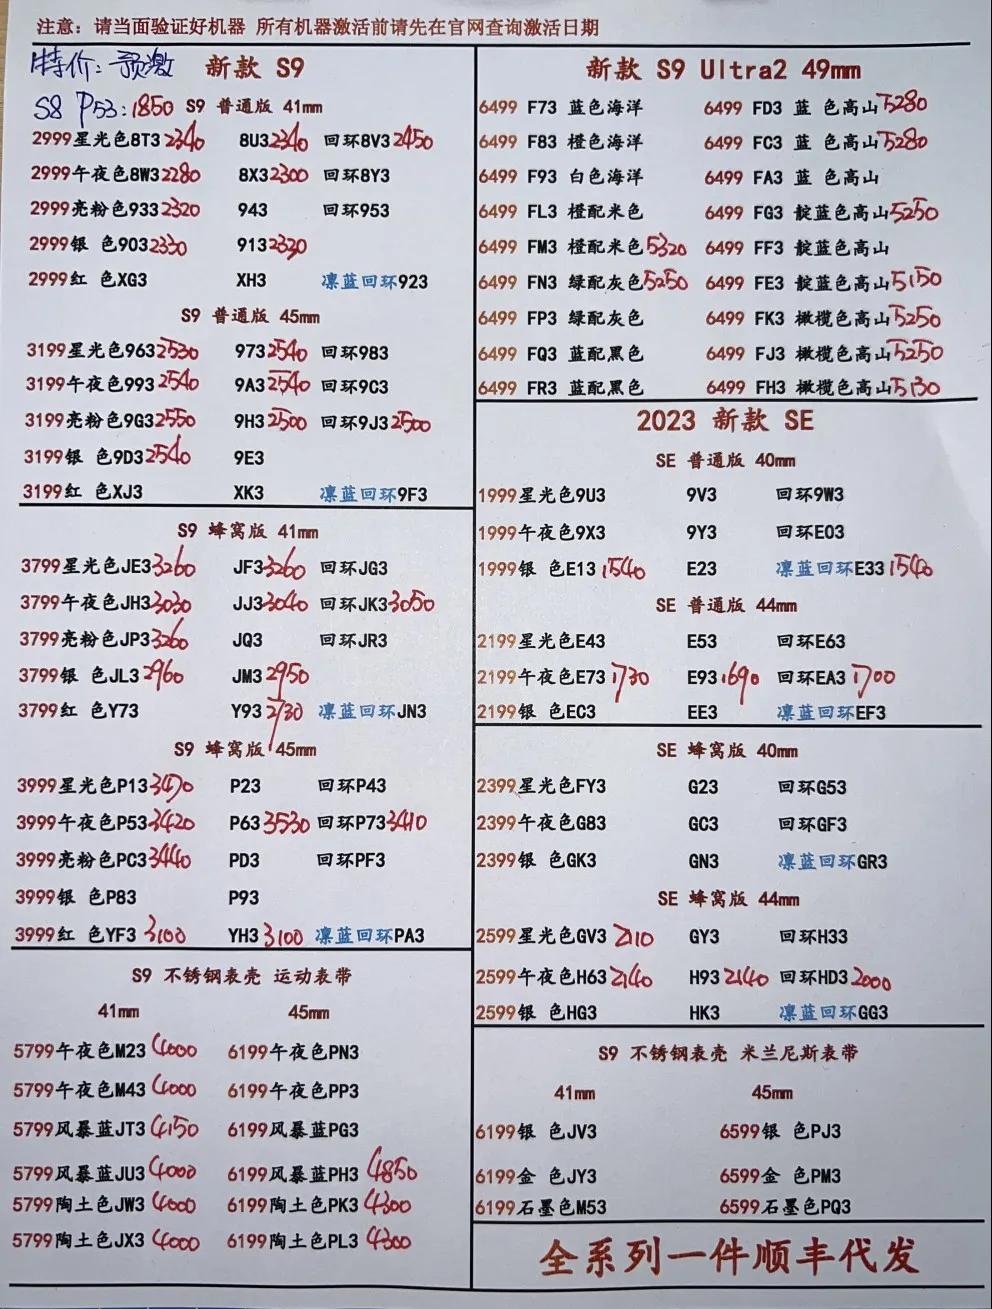 注意：请当面验证好机器 所有机器激活前请先在官网查询激活日期
特价：预激 新款 S9
S8 P53：1850 S9 普通版 41mm
2999星光色8T3 2340 8U3 2340 回环8V3 2450
2999午夜色8W3 2280 8X3 2300 回环8Y3
2999亮粉色933 2320 943 回环953
2999银 色903 2330 913 2320
2999红 色XG3 XH3 凛蓝回环923
S9 普通版 45mm
3199星光色963 2530 973 2540 回环983
3199午夜色993 2540 9A3 2540 回环9C3
3199亮粉色9G3 2550 9H3 2500 回环9J3 2500
3199银 色9D3 2540 9E3
3199红 色XJ3 XK3 凛蓝回环9F3
S9 蜂窝版 41mm
3799星光色JE3 3260 JF3 3260 回环JG3
3799午夜色JH3 3030 JJ3 3040 回环JK3 3050
3799亮粉色JP3 3260 JQ3 回环JR3
3799银 色JL3 2960 JM3 2950
3799红 色Y73 Y93 2730 凛蓝回环JN3
S9 蜂窝版 45mm
3999星光色P13 3470 P23 回环P43
3999午夜色P53 3420 P63 3530 回环P73 3410
3999亮粉色PC3 3440 PD3 回环PF3
3999银 色P83 P93
3999红 色YF3 3100 YH3 3100 凛蓝回环PA3
S9 不锈钢表壳 运动表带
41mm 45mm
5799午夜色M23 4000 6199午夜色PN3
5799午夜色M43 4000 6199午夜色PP3
5799风暴蓝JT3 4150 6199风暴蓝PG3
5799风暴蓝JU3 4000 6199风暴蓝PH3 4850
5799陶土色JW3 4000 6199陶土色PK3 4300
5799陶土色JX3 4000 6199陶土色PL3 4300
新款 S9 Ultra2 49mm
6499 F73 蓝色海洋 6499 FD3 蓝 色高山 5280
6499 F83 橙色海洋 6499 FC3 蓝 色高山 5280
6499 F93 白色海洋 6499 FA3 蓝 色高山
6499 FL3 橙配米色 6499 FG3 靛蓝色高山 5250
6499 FM3 橙配米色 5320 6499 FF3 靛蓝色高山
6499 FN3 绿配灰色 5250 6499 FE3 靛蓝色高山 5150
6499 FP3 绿配灰色 6499 FK3 橄榄色高山 5250
6499 FQ3 蓝配黑色 6499 FJ3 橄榄色高山 5250
6499 FR3 蓝配黑色 6499 FH3 橄榄色高山 5130
2023 新款 SE
SE 普通版 40mm
1999星光色9U3 9V3 回环9W3
1999午夜色9X3 9Y3 回环E03
1999银 色E13 1540 E23 凛蓝回环E33 1540
SE 普通版 44mm
2199星光色E43 E53 回环E63
2199午夜色E73 1730 E93 1690 回环EA3 1700
2199银 色EC3 EE3 凛蓝回环EF3
SE 蜂窝版 40mm
2399星光色FY3 G23 回环G53
2399午夜色G83 GC3 回环GF3
2399银 色GK3 GN3 凛蓝回环GR3
SE 蜂窝版 44mm
2599星光色GV3 2110 GY3 回环H33
2599午夜色H63 2140 H93 2140 回环HD3 2000
2599银 色HG3 HK3 凛蓝回环GG3
S9 不锈钢表壳 米兰尼斯表带
41mm 45mm
6199银 色JV3 6599银 色PJ3
6199金 色JY3 6599金 色PM3
6199石墨色M53 6599石墨色PQ3
全系列一件顺丰代发